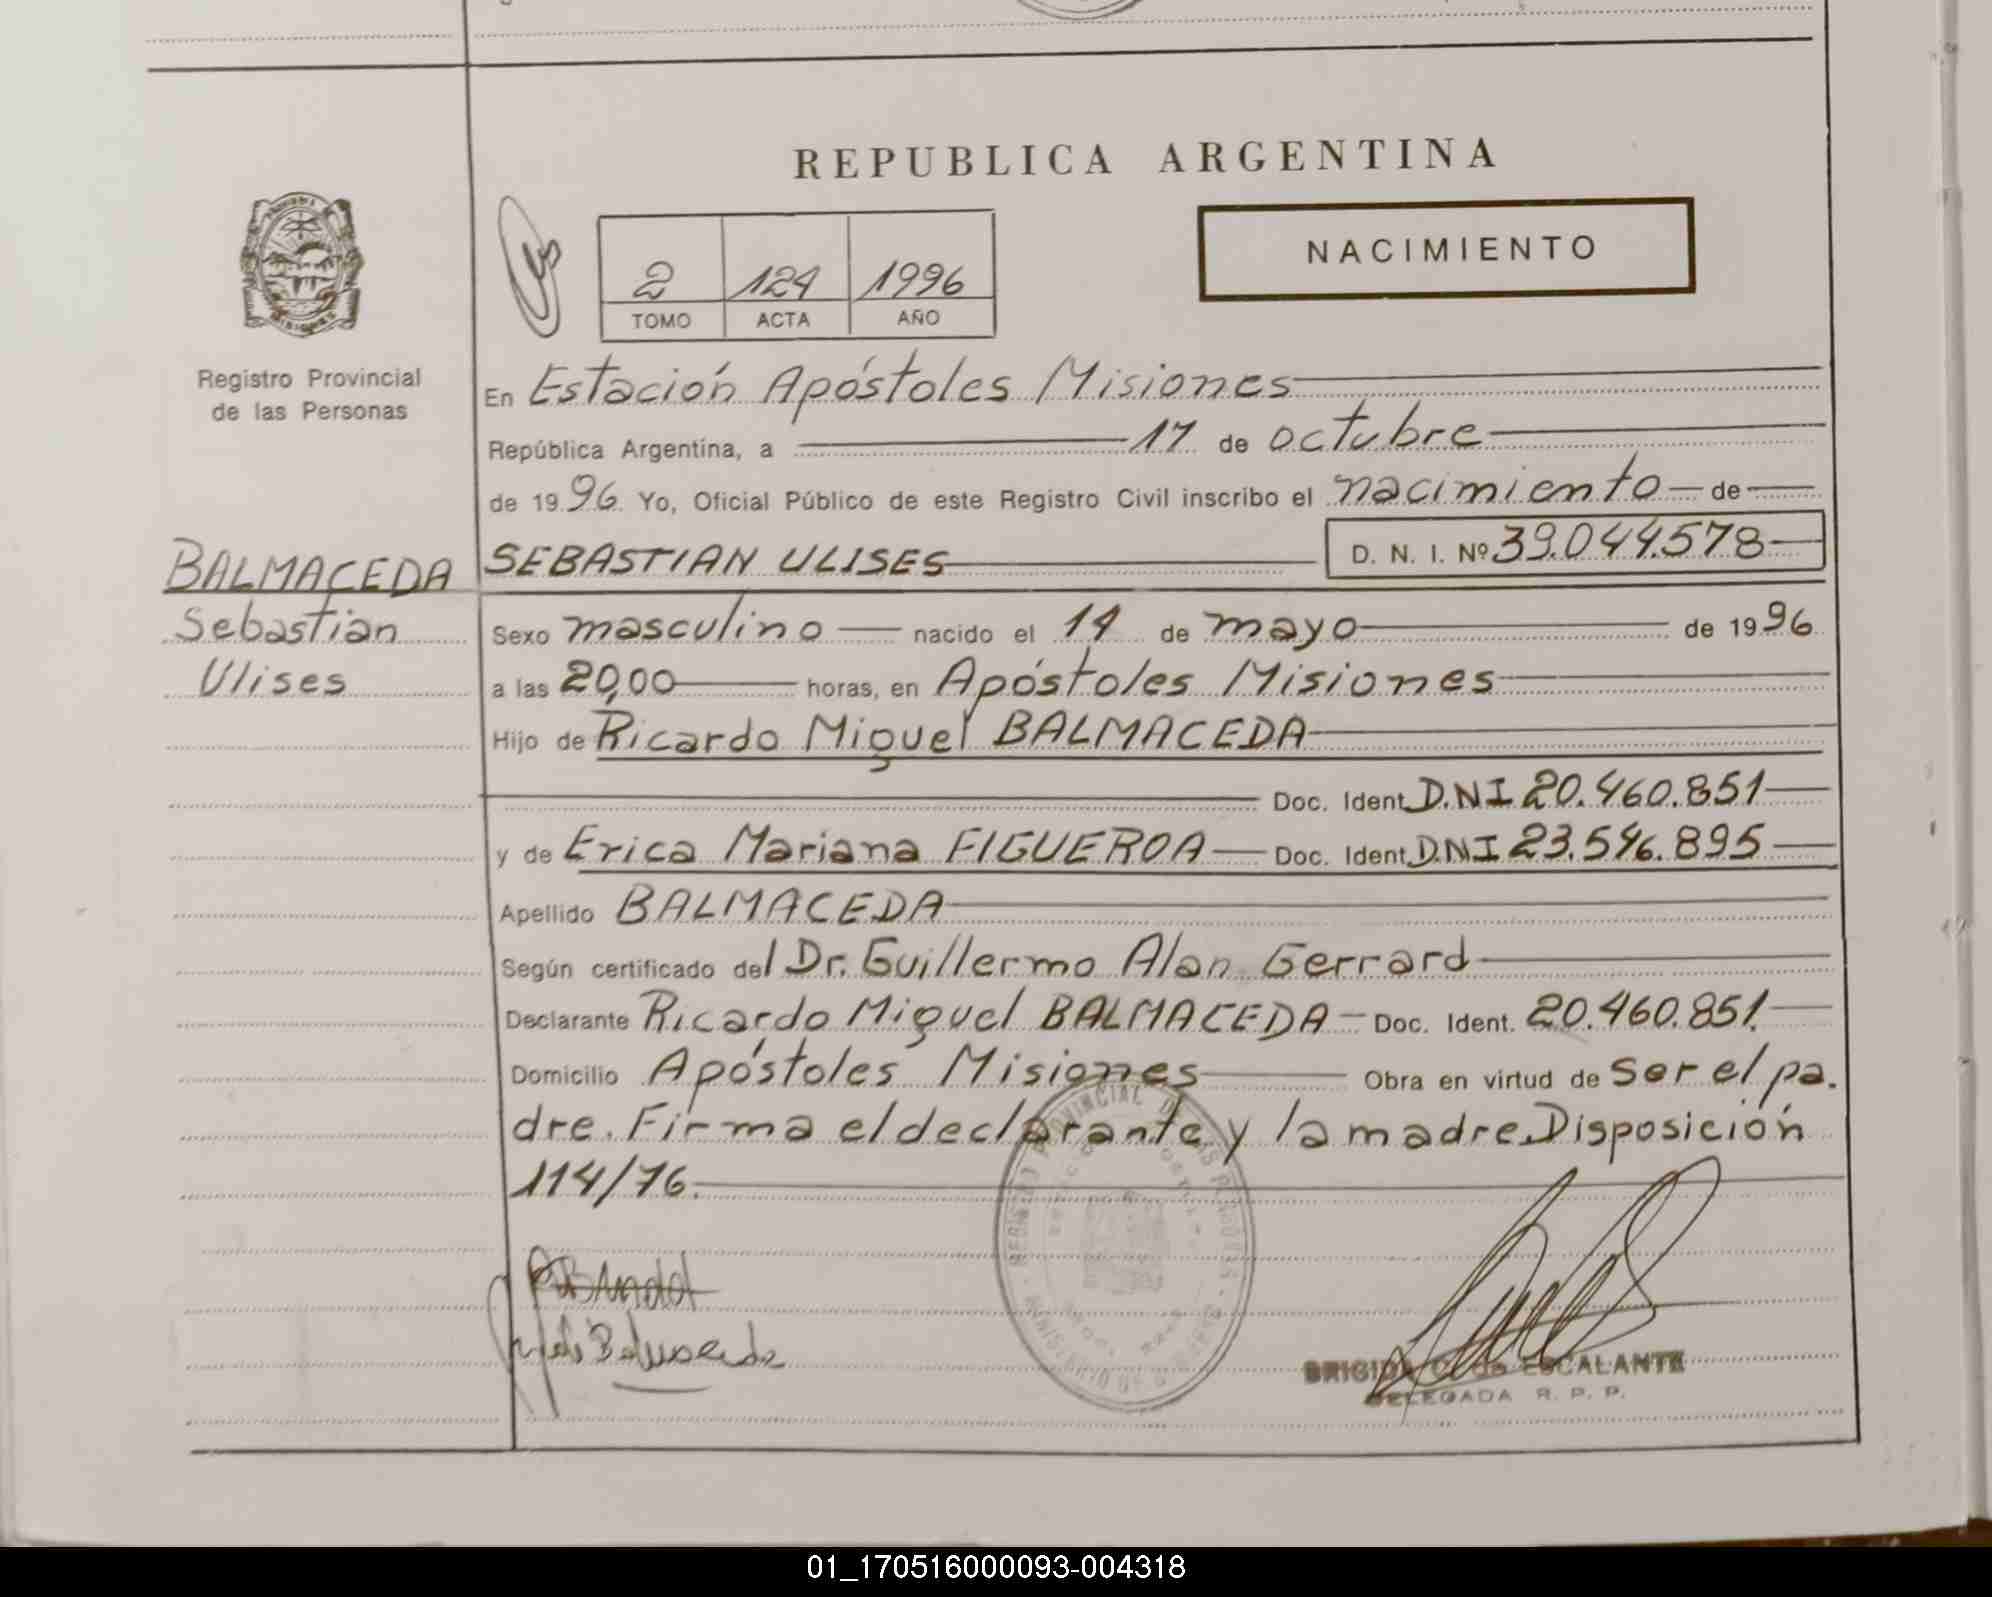 REPUBLICA ARGENTINA
NACIMIENTO
2 124 1996
TOMO ACTA AÑO
Registro Provincial
de las Personas
En Estación Apóstoles Misiones
República Argentina, a 17 de octubre
de 1996. Yo, Oficial Público de este Registro Civil inscribo el nacimiento de
BALMACEDA
Sebastian
Ulises
SEBASTIAN ULISES D. N. I. Nº 39.044.578
Sexo masculino nacido el 14 de mayo de 1996
a las 20,00 horas, en Apóstoles Misiones
Hijo de Ricardo Miguel BALMACEDA
Doc. Ident. D.NI 20.460.851
y de Erica Mariana FIGUEROA Doc. Ident. D.NI 23.546.895
Apellido BALMACEDA
Según certificado del Dr. Guillermo Alan Gerrard
Declarante Ricardo Miguel BALMACEDA Doc. Ident. 20.460.851.
Domicilio Apóstoles Misiones Obra en virtud de ser el pa.
dre. Firma el declarante y la madre. Disposición
114/76.
REGISTRO PROVINCIAL DE LAS PERSONAS
MINISTERIO DE GOBIERNO
Balmaceda
BRIGIDA G. de ESCALANTE
DELEGADA R. P. P.
01_170516000093-004318